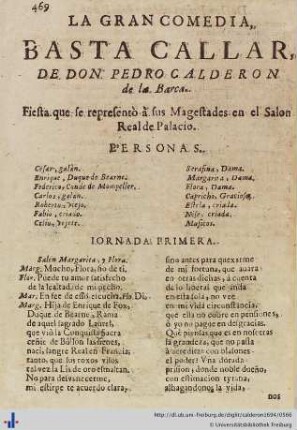 469
LA GRAN COMEDIA,
BASTA CALLAR,
DE DON PEDRO CALDERON
de la Barca.
Fiesta que se representò à sus Magestades en el Salon
Real de Palacio.
PERSONAS.
Cesar, galàn.
Enrique, Duque de Bearne.
Federico, Conde de Mompeller.
Carlos, galan.
Roberto, viejo.
Fabio, criado.
Celio, vejete.
Serafina, Dama.
Margarita, Dama.
Flora, Dama.
Capricho, Gracioso.
Estela, criada.
Nise, criada.
Musicos.
IORNADA PRIMERA.
Salen Margarita, y Flora.
Marg. Mucho, Flora, ño de ti.
Flor. Puede tu amor satisfecho
de la lealtad de mi pecho.
Mar. En fee de esso, escucha. Fl. Di.
Marg. Hija de Enrique de Fox,
Duque de Bearne, Rama
de aquel sagrado Laurel,
que viò la Conquista Sacra
ceñir de Bullon las sienes,
naci, sangre Real de Francia;
tanto, que los roxos
talvez la Lis de oro esmaltan.
No para desvanecerme,
mi estirpe te acuerdo clara,
sino antes para quexarme
de mi fortuna, que avara
en otras dichas, à cuenta
de lo liberal que anda
en esta sola, no vee
en mi vida circunstancias,
que ella no cobre en pensiones,
ò yo no pague en desgracias.
Què piensas que es en nosotras
la grandeza, que no passa
à heredar de los blasones
el poder con olvidarla?
prision donde
con estimacion tyrana,
ahagandonos la vida,
DOS
http://dl.ub.uni-freiburg.de/diglit/calderon1694/0566
© Universitätsbibliothek Freiburg